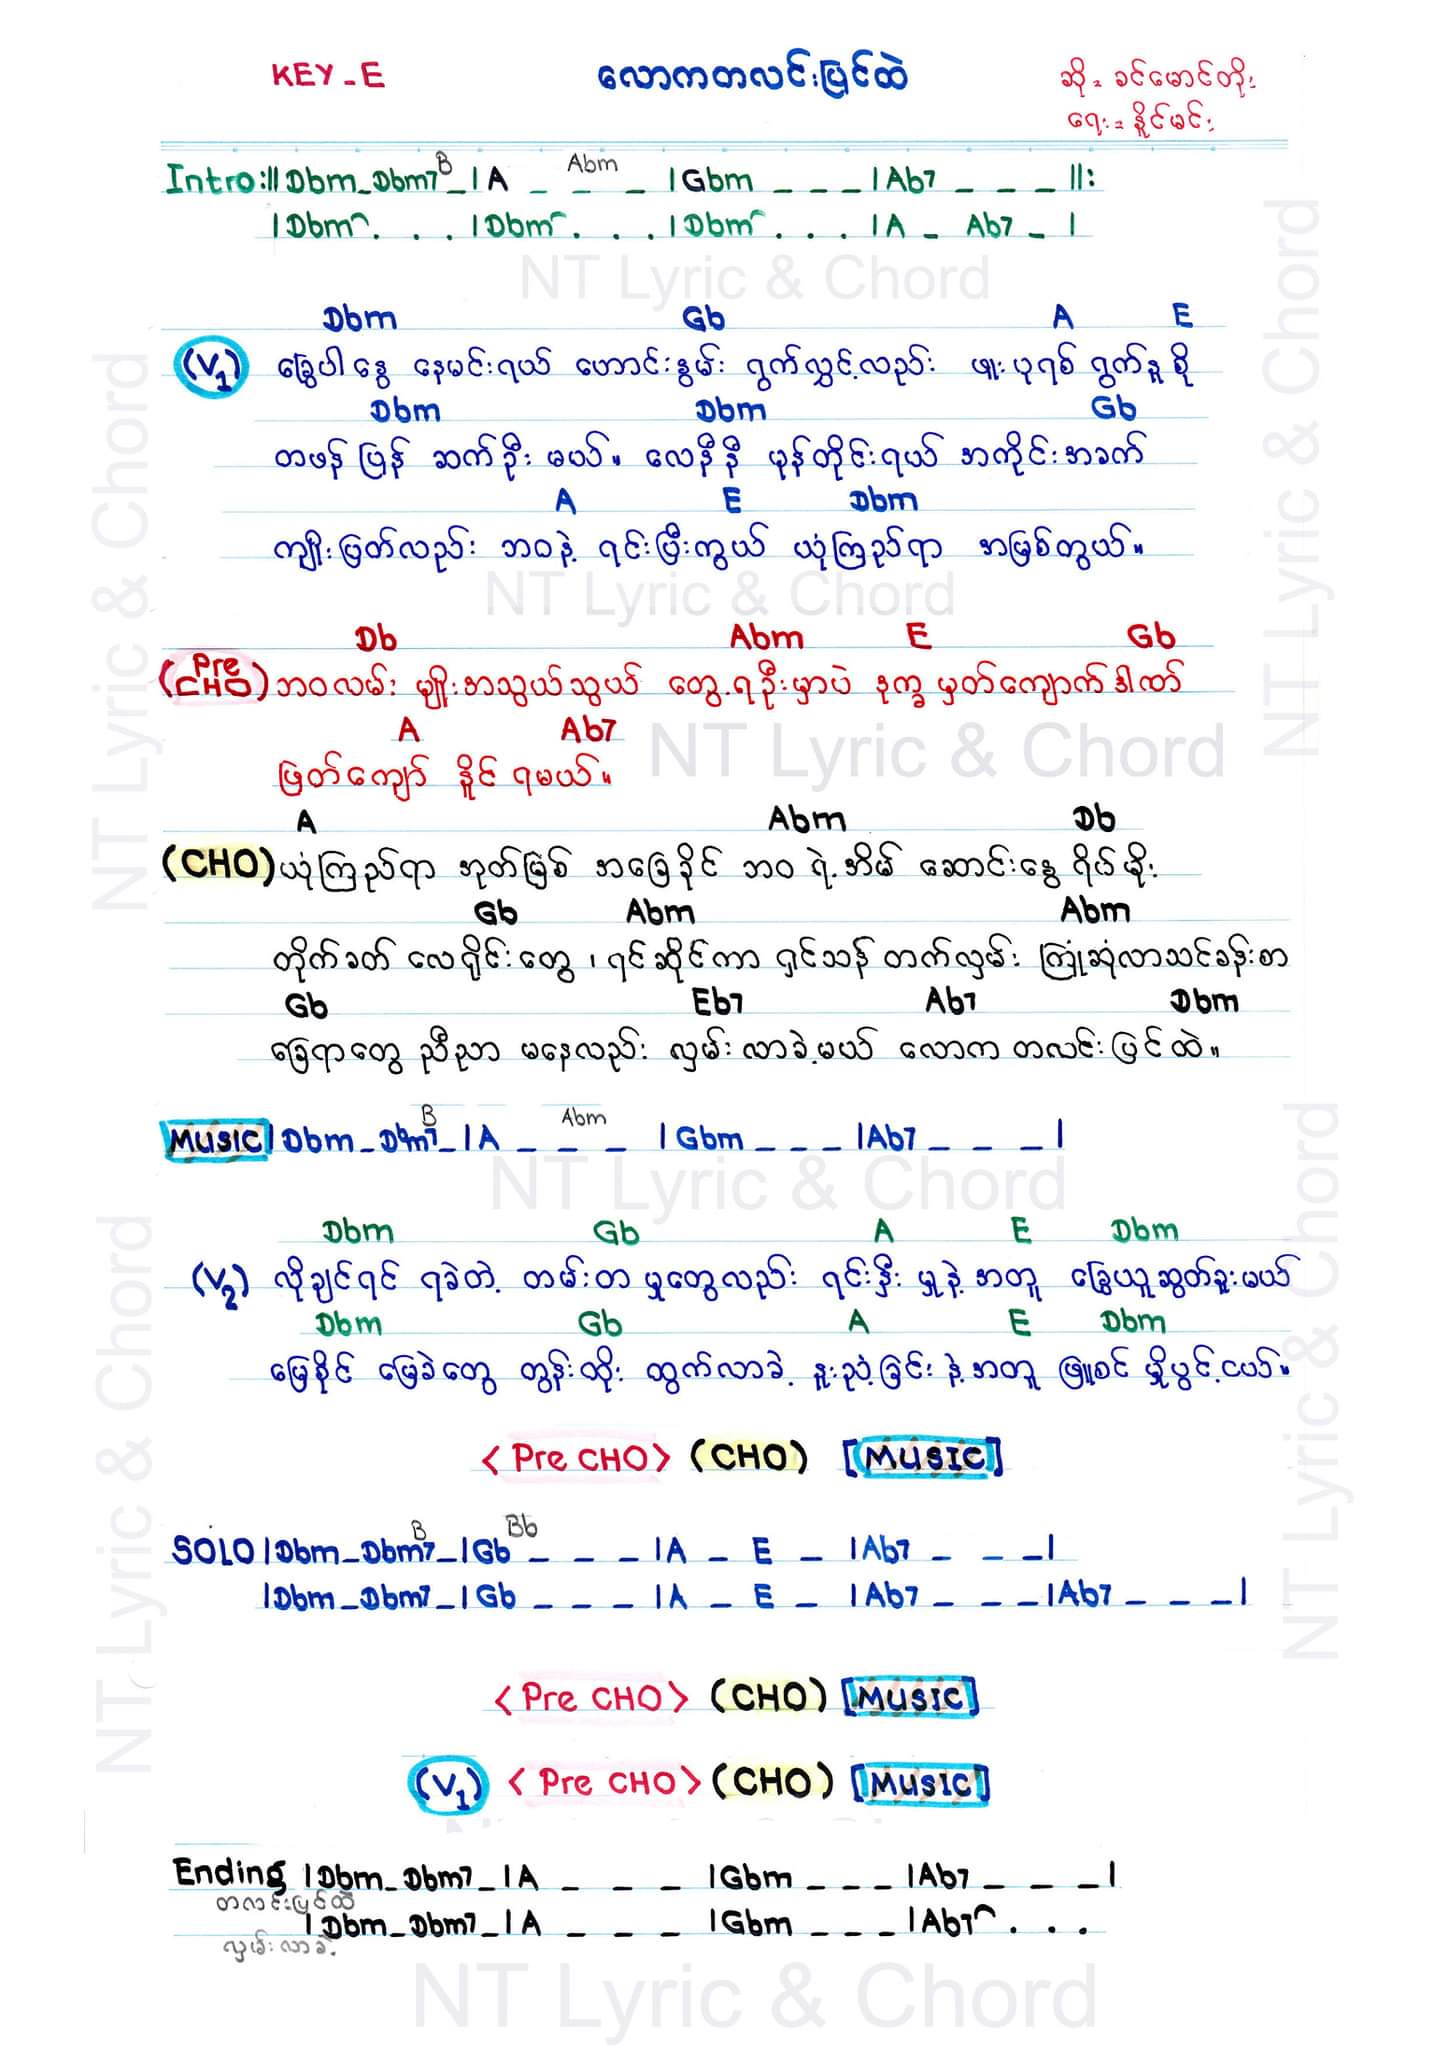 KEY - E
လောကတလင်းပြင်ထဲ
ဆို = ခင်မောင်တိုး
ရေး = နိုင်မင်း
Intro :|| Dbm _ Dbm7 B _ | A _ Abm _ _ | Gbm _ _ _ | Ab7 _ _ _ ||:
| Dbm⌒ . . . | Dbm⌒ . . . | Dbm⌒ . . . | A _ Ab7 _ |
NT Lyric & Chord
Dbm Gb A E
(V1) ခြွေပါနွေ နေမင်းရယ် ဟောင်းနွမ်း ရွက်လွှင့်လည်း ဖူးပုရစ် ရွက်နုစို
Dbm Dbm Gb
တဖန် ပြန် ဆက်ဦး မယ်။ လေနီနီ မုန်တိုင်းရယ် အကိုင်းအခက်
A E Dbm
ကျိုးပြတ်လည်း ဘဝနဲ့ ရင်းပြီးကွယ် ယုံကြည်ရာ အမြစ်တွယ်။
NT Lyric & Chord
Db Abm E Gb
(Pre CHO) ဘဝလမ်း မျိုးအသွယ်သွယ် တွေ့ရဦးမှာပဲ ဒုက္ခ မှတ်ကျောက်ဒါဏ်
A Ab7
ဖြတ်ကျော် နိုင် ရမယ်။
NT Lyric & Chord
A Abm Db
(CHO) ယုံကြည်ရာ အုတ်မြစ် အခြေခိုင် ဘဝ ရဲ့အိမ် ဆောင်းနွေ ရိုဗ်မိုး
Gb Abm Abm
တိုက်ခတ် လေရိုင်းတွေ ၊ ရင်ဆိုင်ကာ ရှင်သန် တက်လှမ်း ကြုံဆုံလာသင်ခန်းစာ
Gb Eb7 Ab7 Dbm
ခြေရာတွေ ညီညာ မနေလည်း လှမ်းလာခဲ့မယ် လောက တလင်းပြင်ထဲ။
MUSIC | Dbm _ Dbm7 B _ | A _ Abm _ _ | Gbm _ _ _ | Ab7 _ _ _ |
NT Lyric & Chord
Dbm Gb A E Dbm
(V2) လိုချင်ရင် ရခဲတဲ့ တမ်းတ မှုတွေလည်း ရင်းနှီး မှုနဲ့အတူ ခြွေယူဆွတ်ခူးမယ်
Dbm Gb A E Dbm
မြေစိုင် မြေခဲတွေ တွန်းထိုး ထွက်လာခဲ့ နူးညံ့ခြင်းနဲ့အတူ ဖြူစင် မှိုပွင့်ငယ်။
< Pre CHO > (CHO) [MUSIC]
SOLO | Dbm _ Dbm7 B _ | Gb Bb _ _ _ | A _ E _ | Ab7 _ _ _ |
| Dbm _ Dbm7 _ | Gb _ _ _ | A _ E _ | Ab7 _ _ _ | Ab7 _ _ _ |
< Pre CHO > (CHO) [MUSIC]
(V1) < Pre CHO > (CHO) [MUSIC]
Ending | Dbm _ Dbm7 _ | A _ _ _ | Gbm _ _ _ | Ab7 _ _ _ |
တလင်းပြင်ထဲ
| Dbm _ Dbm7 _ | A _ _ _ | Gbm _ _ _ | Ab7⌒ . . .
လှမ်းလာခဲ့
NT Lyric & Chord
NT Lyric & Chord
NT Lyric & Chord
NT Lyric & Chord
NT Lyric & Chord